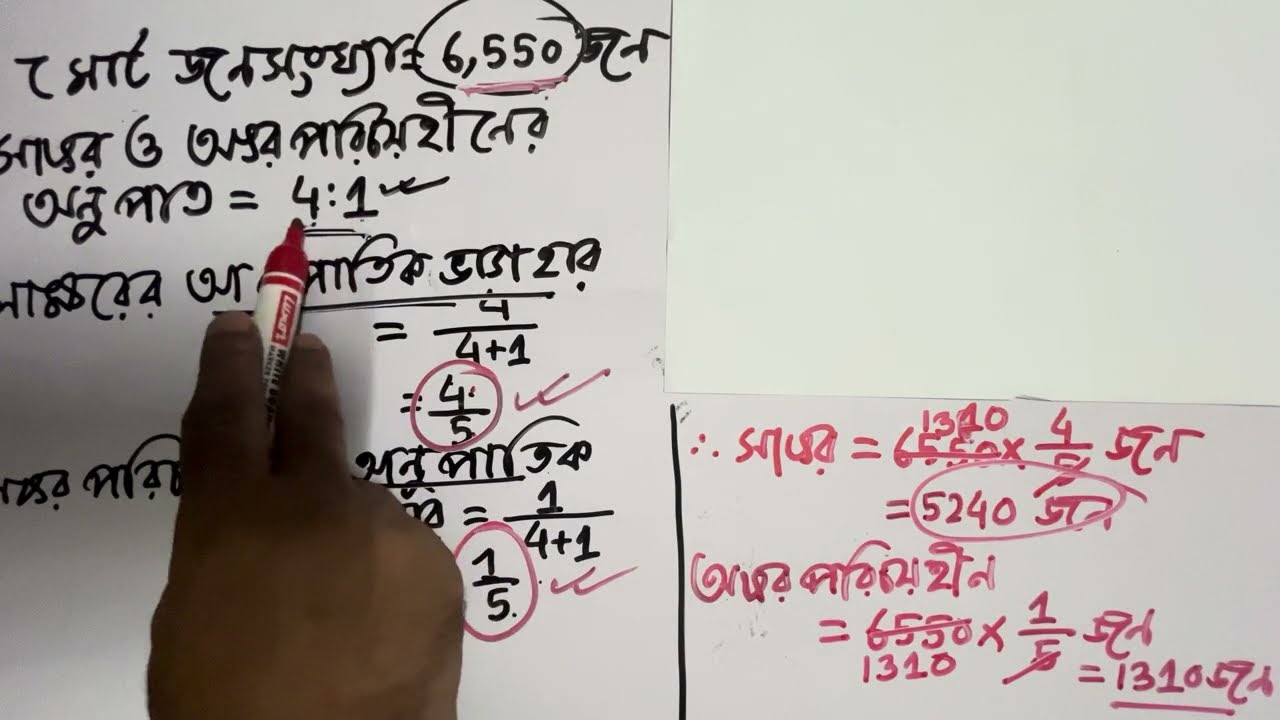 মোট জনসংখ্যা = 6,550 জন
সাক্ষর ও অক্ষর পরিচয়হীনের
অনুপাত = 4:1
সাক্ষরের আ পাতিক ভাগ হার
= 4/4+1
= 4/5
অক্ষর পরিচ অনুপাতিক
= 1/4+1
1/5
1310
∴ সাক্ষর = 6550 × 4/5 জন
= 5240 জন
অক্ষর পরিচয়হীন
= 6550 × 1/5 জন
1310 = 1310 জন